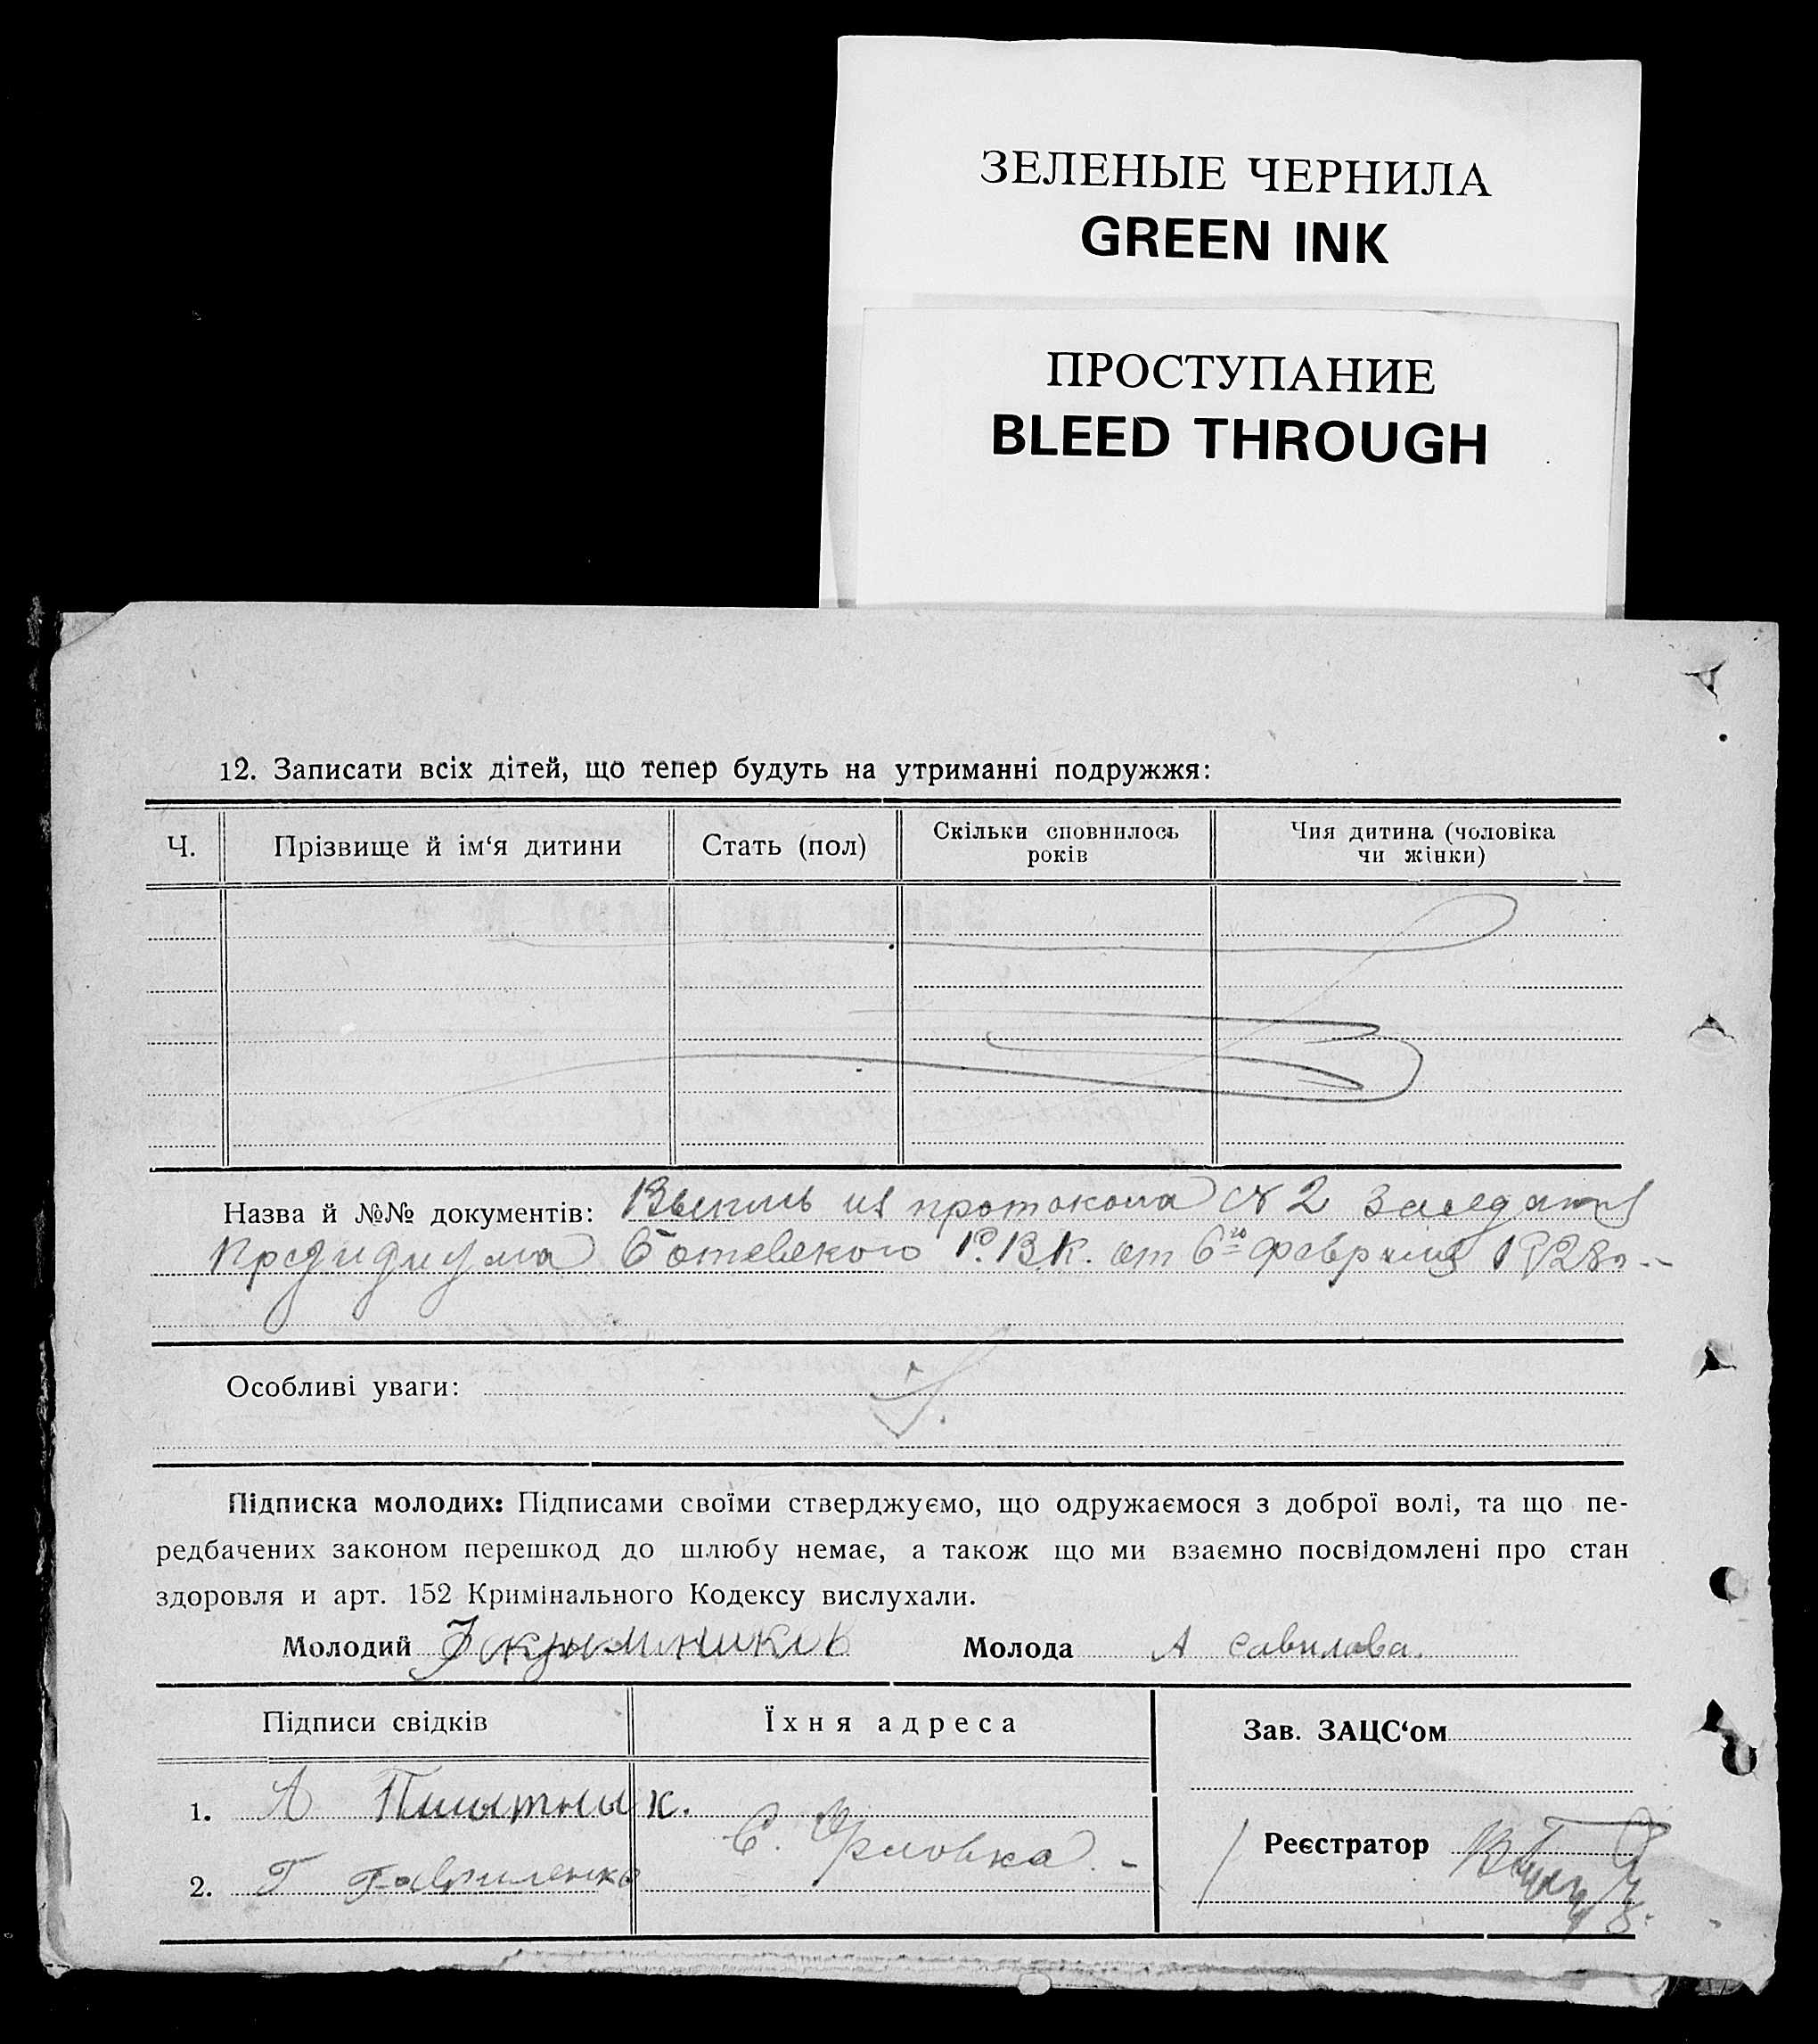 ЗЕЛЕНЫЕ ЧЕРНИЛА
GREEN INK
ПРОСТУПАНИЕ
BLEED THROUGH
12. Записати всіх дітей, що тепер будуть на утриманні подружжя:
Ч.
Прізвище й ім‘я дитини
Стать (пол)
Скільки сповнилось
років
Чия дитина (чоловіка
чи жінки)
Назва й №№ документів: из протокола № 2
Президиума Р.В.К. от 6го февраля 1928г.
Особливі уваги:
Підписка молодих: Підписами своїми стверджуємо, що одружаємося з доброї волі, та що пе-
редбачених законом перешкод до шлюбу немає, а також що ми взаємно посвідомлені про стан
здоровля и арт. 152 Кримінального Кодексу вислухали.
Молодий
Молода А Савилова.
Підписи свідків
Їхня адреса
Зав. ЗАЦС‘ом
1. А
2. Г Гавриленко
С. Орловка.-
Реєстратор